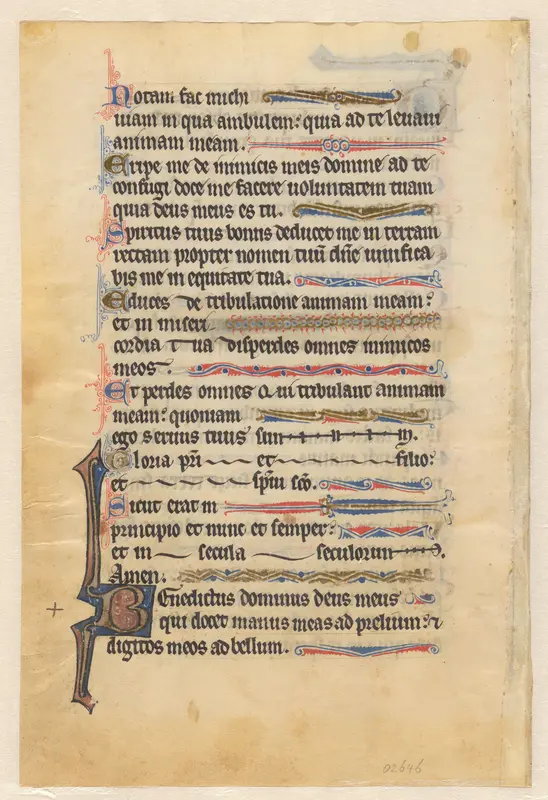 Notam fac michi
uiam in qua ambulem: quia ad te leuaui
animam meam.
Eripe me de inimicis meis domine ad te
confugi doce me facere uoluntatem tuam
quia deus meus es tu.
Spiritus tuus bonus deducet me in terram
rectam propter nomen tuū dn̄e uiuifica
bis me in equitate tua.
Educes de tribulatione animam meam:
et in miseri
cordia t ua disperdes omnes inimicos
meos.
Et perdes omnes q ui tribulant animam
meam: quoniam
ego seruus tuus sum.
Gloria pr̄i et filio:
et sp̄ui sc̄o.
Sicut erat in
principio et nunc et semper:
et in secula seculorum.
Amen.
Benedictus dominus deus meus
qui docet manus meas ad prelium: &
digitos meos ad bellum.
02646